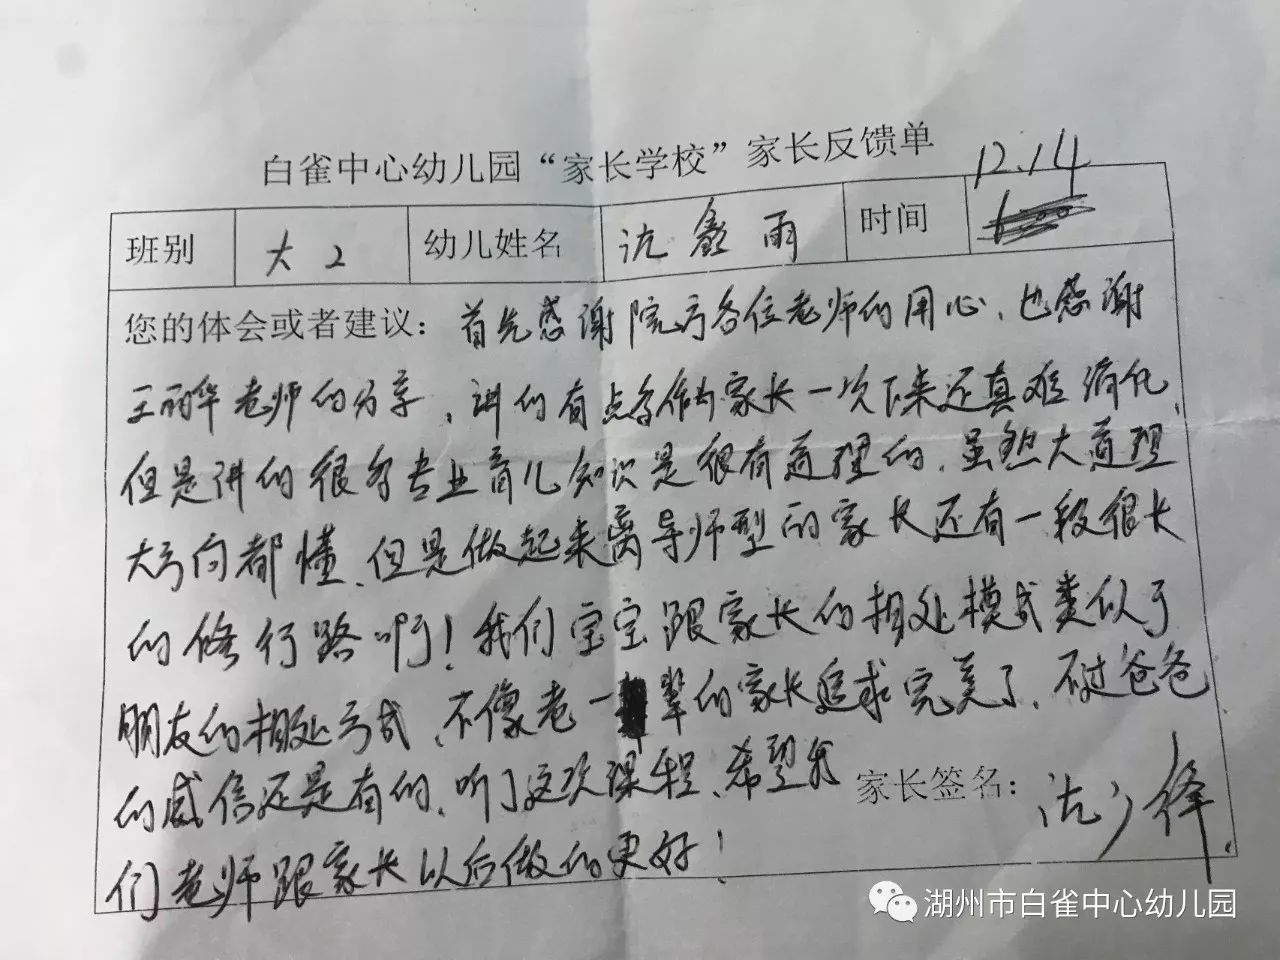 白雀中心幼儿园“家长学校”家长反馈单
班别 大2 幼儿姓名 沈鑫雨 时间 12.14
您的体会或者建议：首先感谢院方各位老师的用心、也感谢
王丽华老师的分享、讲的有点多作为家长一次下来还真难消化、
但是讲的很多专业育儿知识是很有道理的、虽然大道理
大方向都懂、但是做起来离导师型的家长还有一段很长
的修行路啊！我们宝宝跟家长的相处模式类似于
朋友的相处方式、不像老一辈的家长追求完美了、不过爸爸
的威信还是有的、听了这次课程、希望我
家长签名：沈
们老师跟家长以后做的更好！
湖州市白雀中心幼儿园